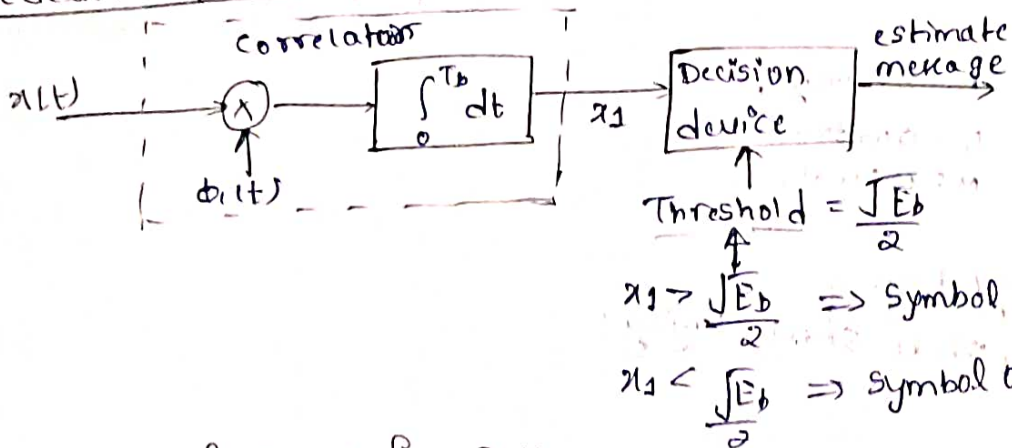 correlator
x(t)
×
∫₀^Tb dt
x1
Decision
device
estimate
message
ϕ1(t)
Threshold = √Eb/2
x1 > √Eb/2 => Symbol
x1 < √Eb/2 => Symbol